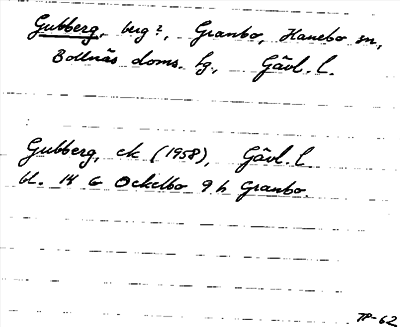 Gubberg, berg?, Granbo, Hanebo sn,
Bollnäs doms. hg., Gävl. l.
Gubberg, ek (1958), Gävl. l
bl. 14 G Ockelbo 9 h Granbo.
TP-62